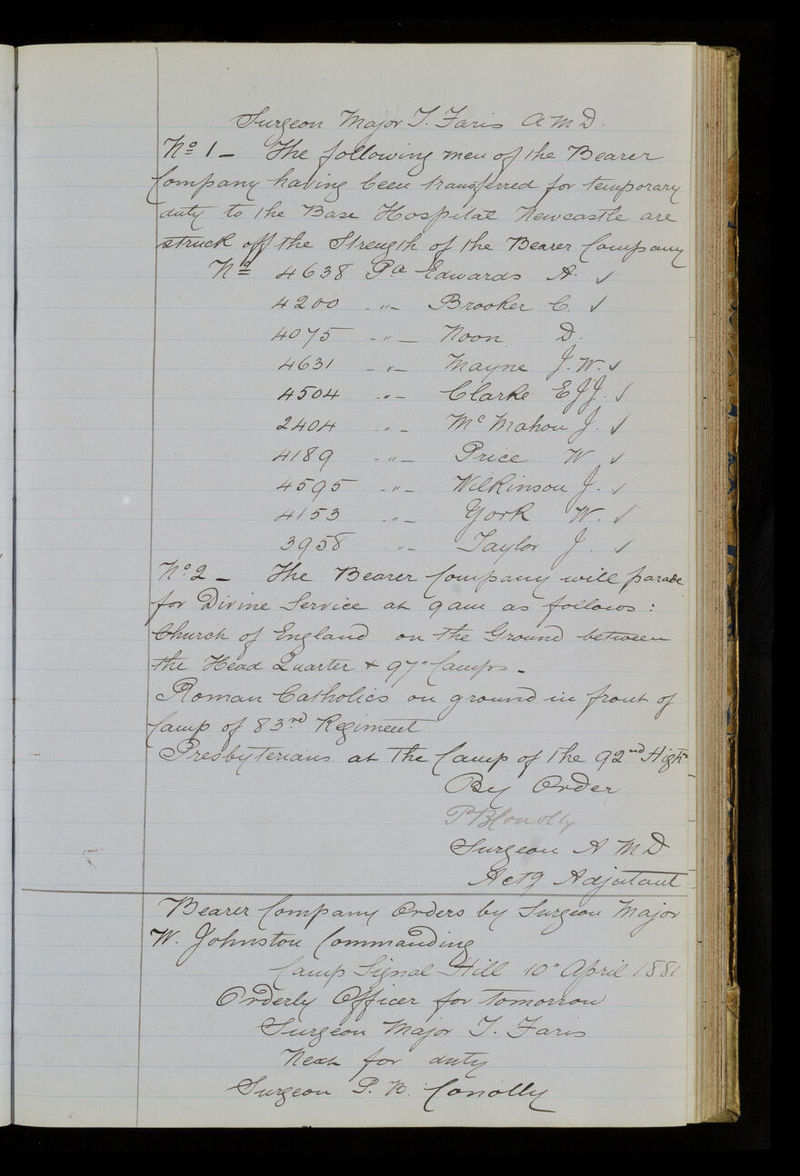 Surgeon Major T. Faris A M D.
No 1 - The following men of the Bearer
Company having been transferred for temporary
duty to the Base Hospital Newcastle are
struck off the Strength of the Bearer Company
No 4638 Pte Edwards A. ✓
4200 -"- Brooker C. ✓
4075 -"- Noon D.
4631 -"- Mayne J. W. ✓
4504 -"- Clarke E J J. ✓
2404 -"- McMahon J. ✓
4189 -"- Price W ✓
4595 -"- Wilkinson J. ✓
4153 -"- York W. ✓
3958 -"- Taylor J. ✓
No 2 - The Bearer Company will parade
for Divine Service at 9 am as follows :
Church of England on the Ground between
the Head Quarter + 97" Camps -
Roman Catholics on ground in front of
Camp of 83rd Regiment
Presbyterians at the Camp of the 92nd Highrs
By Order
P B Conolly
Surgeon A M D
Actg Adjutant
Bearer Company Orders by Surgeon Major
W. Johnston Commanding
Camp Signal Hill 10" April 1881
Orderly Officer for Tomorrow
Surgeon Major T. Faris
Next for duty
Surgeon P. B. Conolly